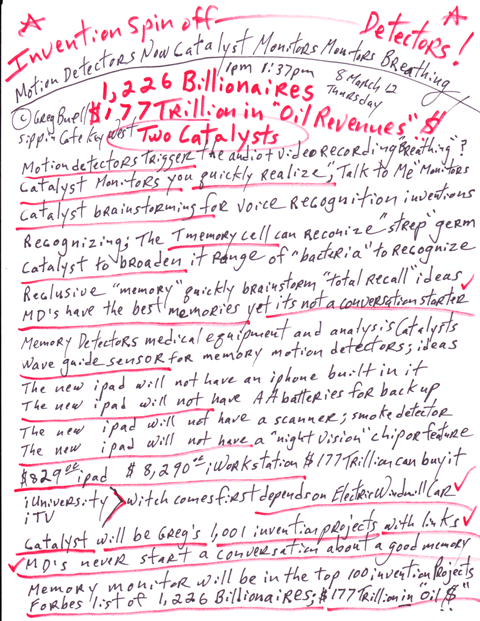 Invention Spin off Detectors!
Motion Detectors Now Catalyst Monitors Monitors Breathing
1pm 1:37pm 8 March 12
Thursday
1,226 Billionaires
© Greg Buell $177 Trillion in "Oil Revenues" $
Sippin Cafe Key West Two Catalysts
Motion detectors trigger the audio + video recording "Breathing"?
Catalyst Monitors you quickly realize", Talk to Me "Monitors
Catalyst brainstorming for voice Recognition inventions
Recognizing; The Tmemory cell can reconize "strep" germ
Catalyst to broaden it range of "bacteria" to Recognize
Reclusive "memory" quickly brainstorm "total recall" ideas
MD's have the best memories yet its not a conversation starter
Memory Detectors medical equipment and analysis Catalysts
Wave guide sensor for memory motion detectors; ideas
The new ipad will not have an iphone built in it
The new ipad will not have AA batteries for back up
The new ipad will not have a scanner; smoke detector
The new ipad will not have a "night vision" chip or feature
$829 00 ipad $8,290 00 iWorkstation $177 Trillion can buy it
iUniversity
iTV > witch comes first depends on Electric Windmill Car
Catalyst will be Greg's 1,001 invention projects with links
MD's never start a conversation about a good memory
Memory monitor will be in the top 100 invention Projects
Forbes list of 1,226 Billionaires; $177 Trillion in "Oil $"